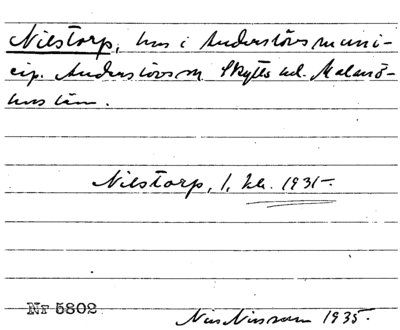 Nilstorp, hus i Anderslövs muni-
cip. Anderslövs sn Skytts hd. Malmö-
hus län.
Nilstorp, l. kl. 1931-.
Nr 5802
Nils Nilsson 1935.